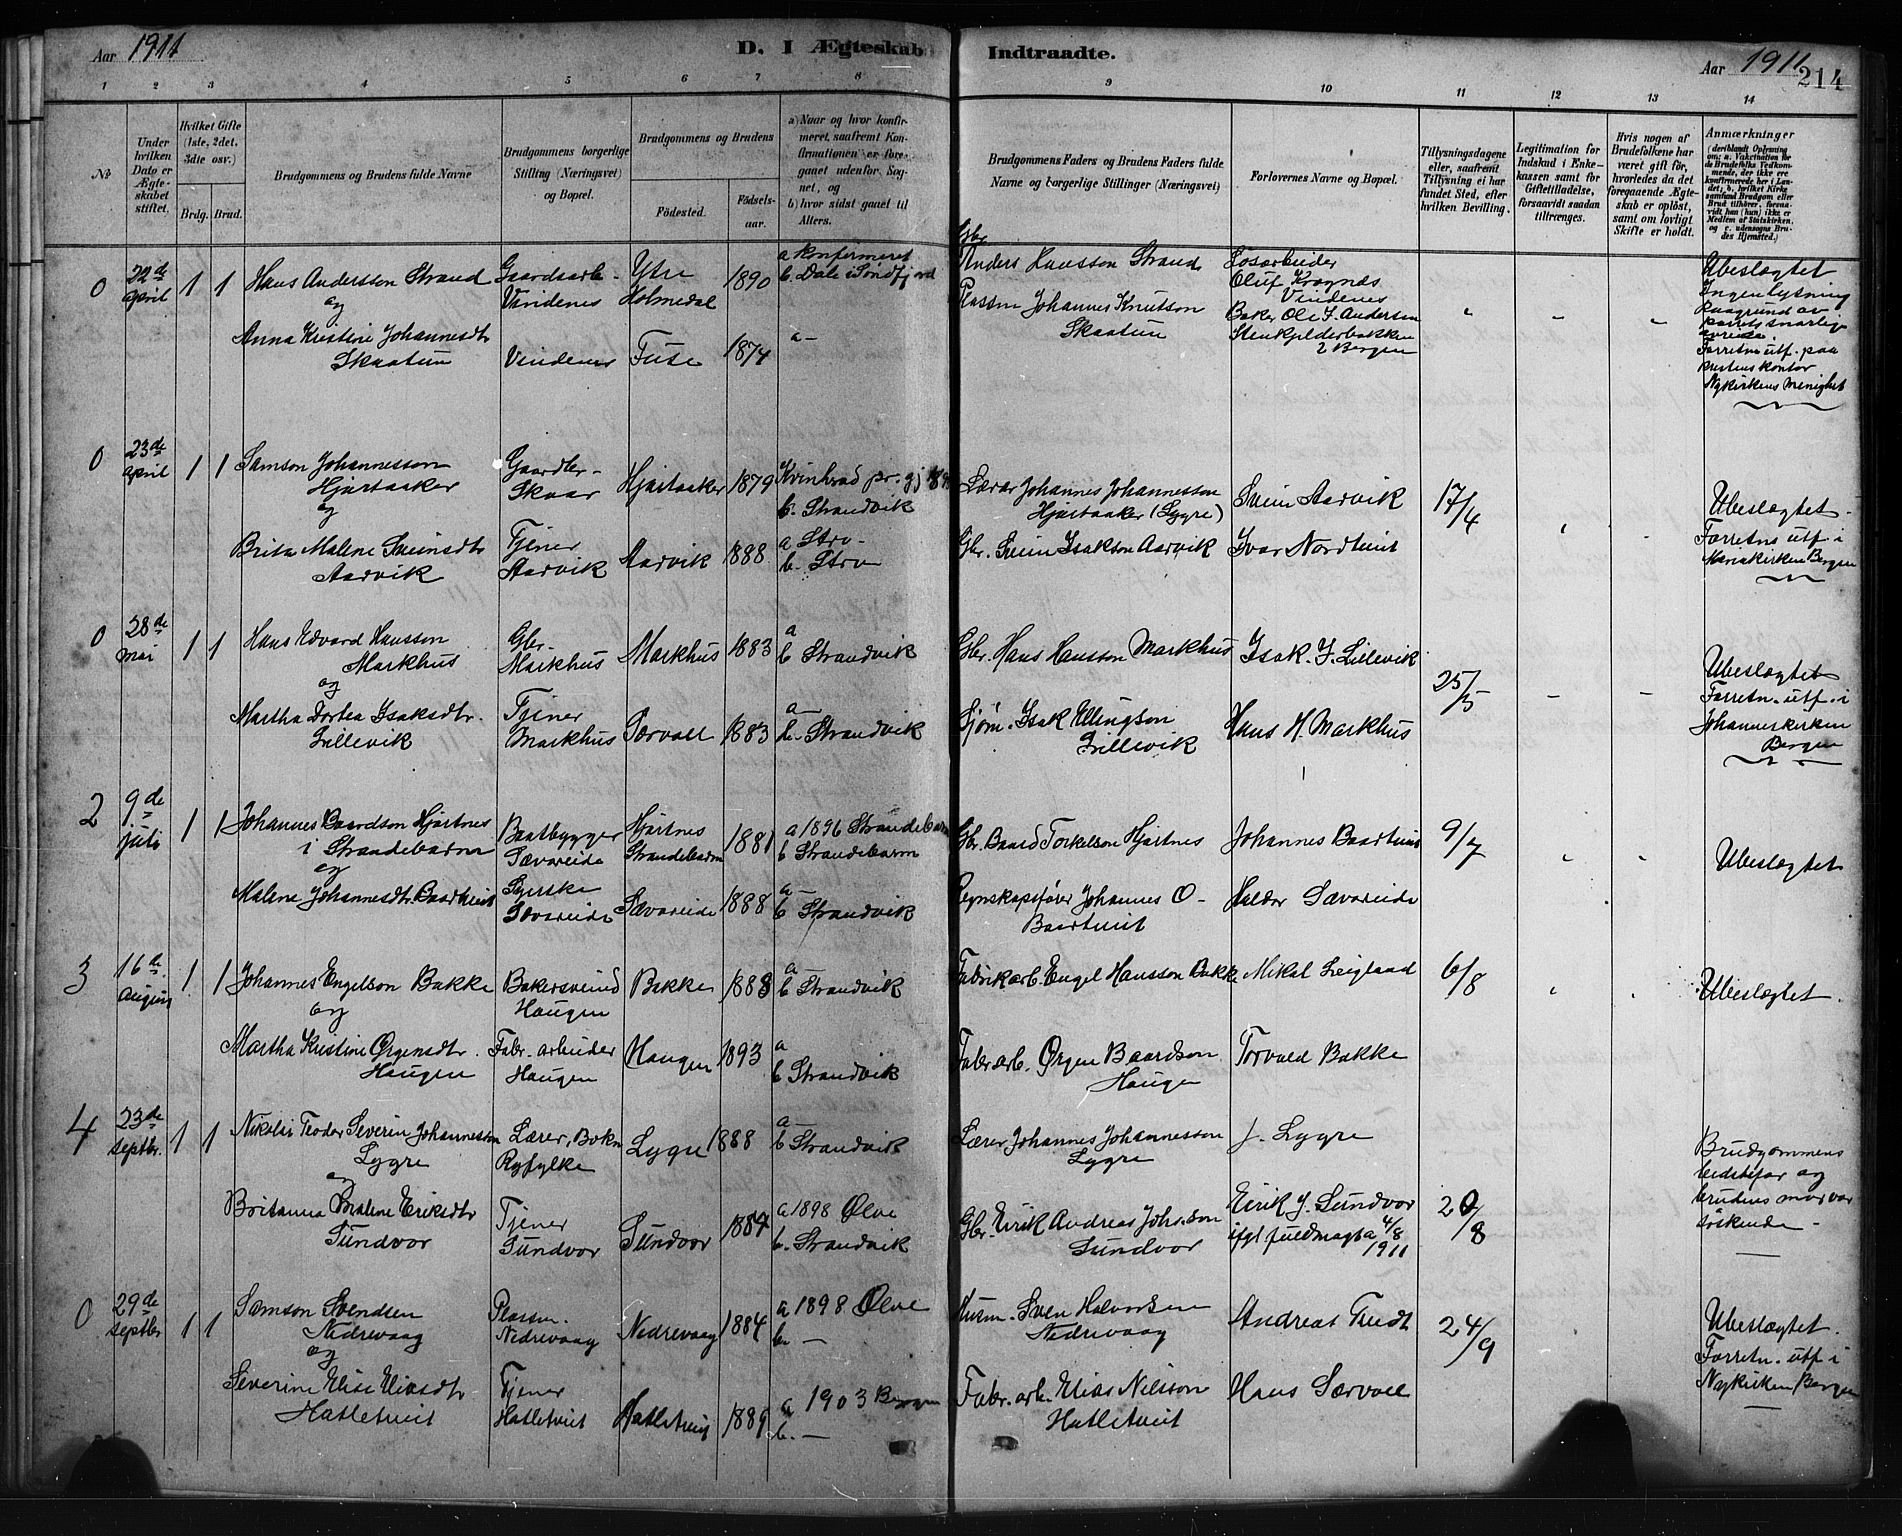 Aar 1911
D. I Ægteskab Indtraadte.
Aar 1911
214
1 2 3 4 5 6 7 8 9 10 11 12 13 14
No
Under hvilken Dato er Ægteskabet stiftet.
Hvilket Gifte (1ste, 2det, 3die osv.)
Brdg. Brud.
Brudgommens og Brudens fulde Navne
Brudgommens borgerlige Stilling (Næringsvei) og Bopæl.
Brudgommens og Brudens
Fødested.
Fødselsaar.
a) Naar og hvor konfirmeret, saafremt Konfirmationen er foregaaet udenfor Sognet, og
b) hvor sidst gaaet til Alters.
Brudgommens Faders og Brudens Faders fulde Navne og borgerlige Stillinger (Næringsvei)
Forlovernes Navne og Bopæl.
Tillysningsdagene eller, saafremt Tillysning ei har fundet Sted, efter hvilken Bevilling.
Legitimation for Indskud i Enkekassen samt for Giftetilladelse, forsaavidt saadan tiltrænges.
Hvis nogen af Brudefolkene har været gift før, hvorledes da det foregaaende Ægteskab er opløst, samt om lovligt Skifte er holdt.
Anmærkninger (deriblandt Oplysning om: a. Vaksination for de Brudefolks Vedkommende, der ikke ere konfirmerede her i Landet; b. hvilket Kirkesamfund Brudgom eller Brud tilhører, forsaavidt han (hun) ikke er Medlem af Statskirken, og c. udensogns Brudes Hjemsted.)
0 22de april 1 1 Hans Andersson Strand
og
Gaardsarb. Vindenes
Ytre Holmedal
1890
a konfirmeret
b. Dale i Søndfjord
Gbr. Anders Hansson Strand
Løsarbeider Oluf Kragnæs Vindenes
Anna Kristine Johannesdtr Skaatun
Vindenes
Fuse
1874
a -
Plassm Johannes Knutson Skaatun
Baker Ole J. Andersen
Stenkjelderbakken 2 Bergen
Ubeslægtet
Ingen lysning
Forretn utf. paa
prestens kontor
Nykirkens menighet
0 23de april 1 1 Samson Johannesson Hjartaaker
og
Gaardbr. Skaar
Hjartaaker
1879
Kvinherad pr. gj
b. Strandvik
Lærer Johannes Johannesson Hjartaaker (Lygre)
Svein Aarvik
17/4
Brita Malene Sveinsdtr Aarvik
Tjener Aarvik
Aarvik
1888
a -
b.
Gbr. Svein Isakson Aarvik
Ivar Nordtveit
Ubeslægtet
Forretns utf. i
Mariakirken Bergen
0 28de mai 1 1 Hans Edvard Hansson Markhus
og
Gbr. Markhus
Markhus
1883
a
b Strandvik
Gbr. Hans Hansson Markhus
Isak. J. Lillevik
25/5
Martha Dortea Isaksdtr. Lillevik
Tjener Markhus
Sørvoll
1883
a -
b. Strandvik
Sjøm. Isak Ellingson Lillevik
Hans H. Markhus
Ubeslægtet
Forretn. utf. i
Johanneskirken
Bergen
2 9de juli 1 1 Johannes Baardson Hjartnes i Strandebarm
og
Baatbygger Sævareide
Hjartnes Strandebarm
1881
a 1896 Strandebarm
b Strandebarm
Gbr. Baard Torkelson Hjartnes
Johannes Baartveit
9/7
Ubeslægtet
Malene Johannesdtr. Baartveit
Syerske Sævareide
Sævareide
1888
a -
b Strandvik
Regnskapsfører Johannes O - Baartveit
Haldor Sævareide
3 16de august 1 1 Johannes Engelson Bakke
og
Bakersvend Haugen
Bakke
1888
a -
b Strandvik
Fabrikarb. Engel Hansson Bakke
Mikal Leigland
6/8
Ubeslægtet.
Martha Kristine Ørgensdtr. Haugen
Fabr. arbeider Haugen
Haugen
1893
a
b Strandvik
Fabr arb. Ørgen Baardson Haugen
Torvald Bakke
4 23de septbr. 1 1 Nikolai Teodor Severin Johannesson Lygre
og
Lærer, Bokn Ryfylke
Lygre
1888
a -
b Strandvik
Lærer Johannes Johannesson Lygre
J. Lygre
20/8
Britanna Malene Eriksdtr Sundvor
Tjener Sundvor
Sundvor
1884
a 1898 Ølve
b. Strandvik
Gbr. Eirik Andreas Johs.son Sundvor
Eirik J. Sundvor
ifgl fuldmagt a 4/8 1911
Brudgommens
bedstefar og
brudens mor var
søskende -
0 29de septbr 1 1 Samson Svendsen Nedrevaag
og
Plassm. Nedrevaag
Nedrevaag
1884
a 1898 Ølve
b. -
Husm. Sven Halvorsen Nedrevaag
Andreas Tvedt
24/9
Severine Elise Eliasdtr Hatletveit
Tjener Hatletveit
Hatletveit
1889
a 1903 Bergen
b. -
Fabr. arb. Elias Nilsson Hatletveit
Hans Sørvoll
Ubeslægtet.
Forretn. utf. i
Nykirken Bergen